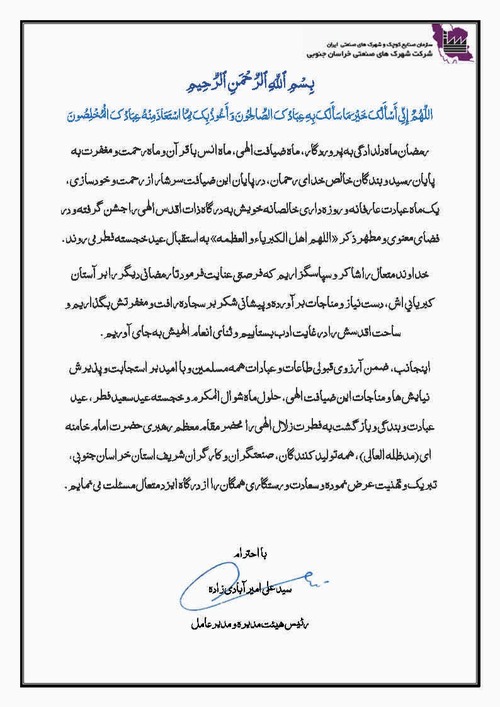 سازمان صنایع کوچک و شهرک های صنعتی ایران
شرکت شهرک های صنعتی خراسان جنوبی
بِسْمِ اللَّهِ الرَّحْمَنِ الرَّحِیمِ
اللَّهُمَّ إِنِّی أَسْأَلُکَ خَیْرَ مَا سَأَلَکَ بِهِ عِبَادُکَ الصَّالِحُونَ وَ أَعُوذُ بِکَ مِمَّا اسْتَعَاذَ مِنْهُ عِبَادُکَ الْمُخْلِصُونَ
رمضان ماه دلدادگی به پروردگار، ماه ضیافت الهی، ماه انس با قرآن و ماه رحمت و مغفرت به
پایان رسید و بندگان خالص خدای رحمان، در پایان این ضیافت سرشار از رحمت و خودسازی،
یک ماه عبادت عارفانه و روزه داری خالصانه خویش به درگاه ذات اقدس الهی را جشن گرفته و در
فضای معنوی و مطهر ذکر «اللهم اهل الکبریاء و العظمه» به استقبال عید خجسته فطر می روند.
خداوند متعال را شاکر و سپاسگزاریم که فرصتی عنایت فرمود تا رمضانی دیگر را بر آستان
کبریائی اش، دست نیاز و مناجات برآورده و پیشانی شکر بر سجاده رافت و مغفرتش بگذاریم و
ساحت اقدسش را در غایت ادب بستاییم و ثنای انعام الهیش به جای آوریم.
اینجانب، ضمن آرزوی قبولی طاعات و عبادات همه مسلمین و با امید بر استجابت و پذیرش
نیایش ها و مناجات این ضیافت الهی، حلول ماه شوال المکرم و خجسته عید سعید فطر، عید
عبادت و بندگی و بازگشت به فطرت زلال الهی را محضر مقام معظم رهبری حضرت امام خامنه
ای(مدظله العالی)، همه تولیدکنندگان، صنعتگران و کارگران شریف استان خراسان جنوبی،
تبریک و تهنیت عرض نموده و سعادت و رستگاری همگان را از درگاه ایزد متعال مسئلت می نمایم.
با احترام
سید علی امیرآبادی زاده
رئیس هیئت مدیره و مدیرعامل